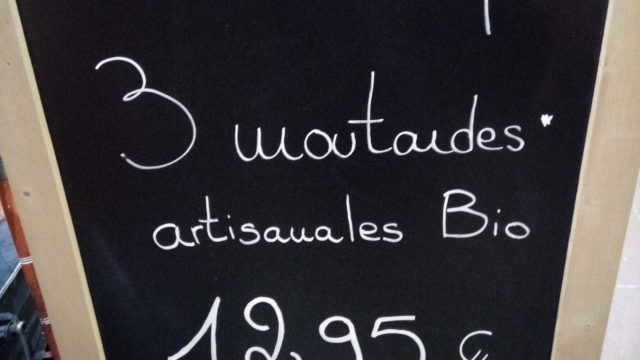 3 moutardes*
artisanales Bio
12,95 €